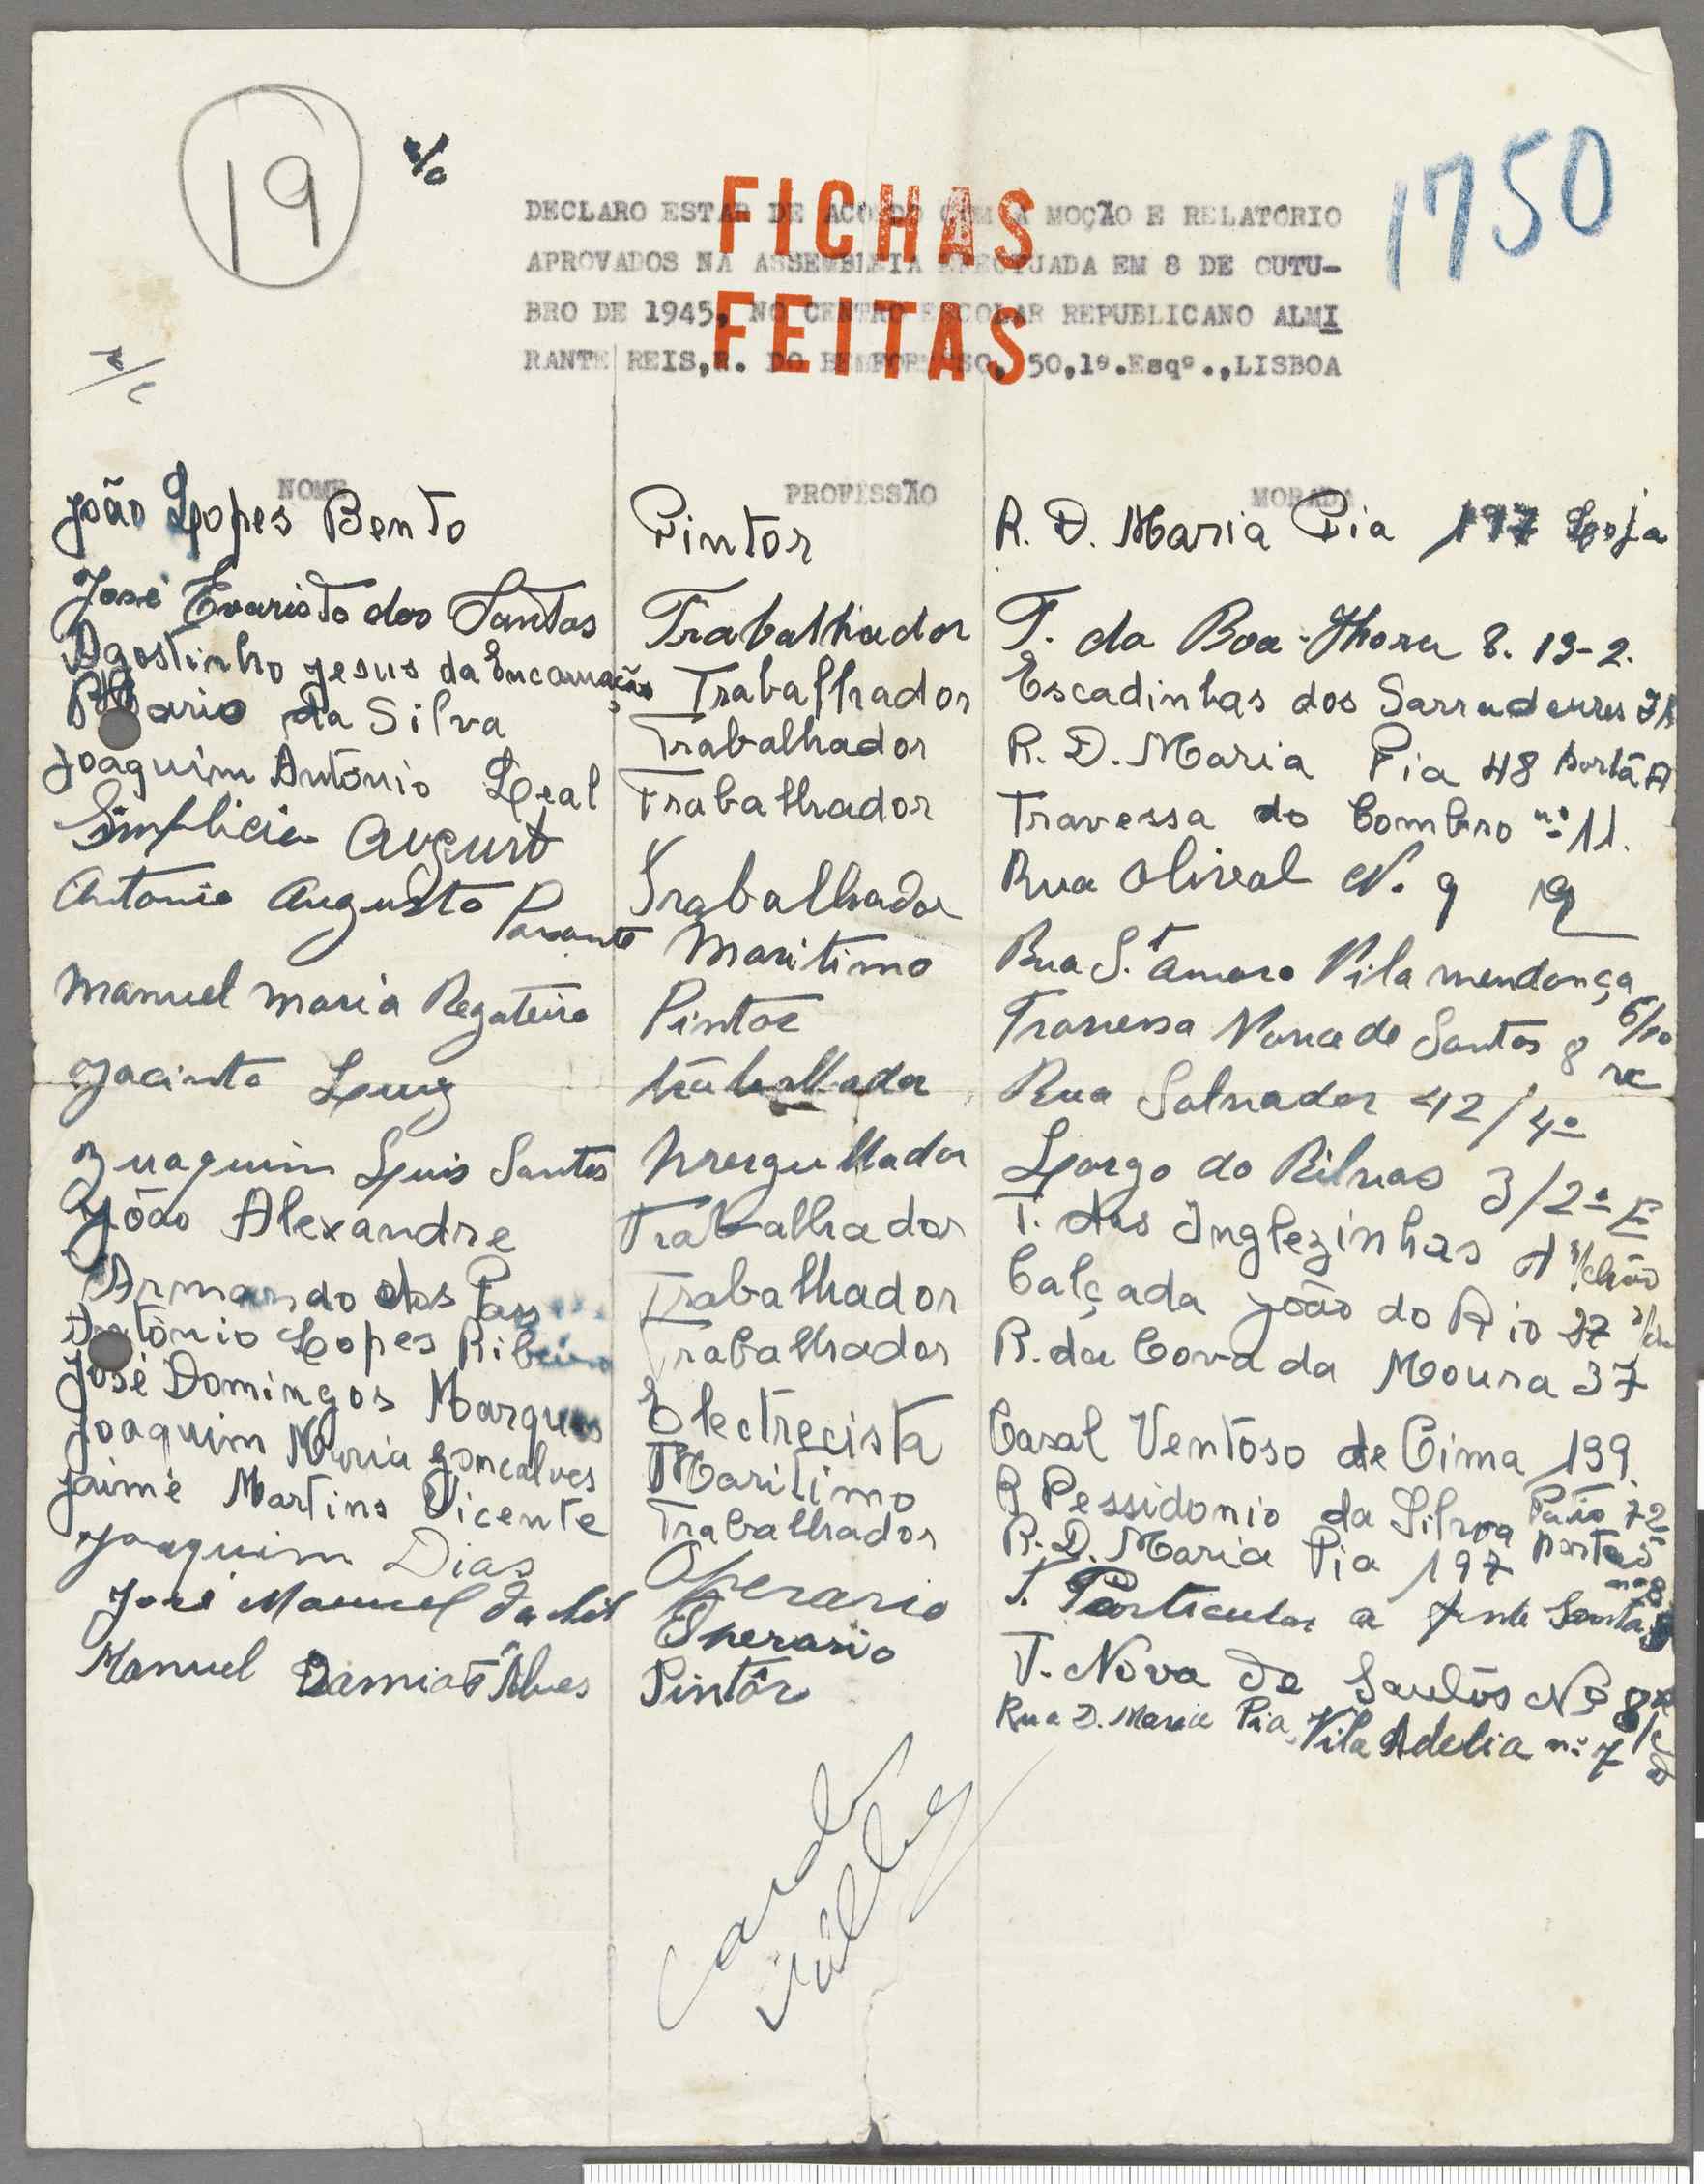 19
1750
FICHAS
FEITAS
DECLARO ESTAR DE ACORDO COM A MOÇÃO E RELATÓRIO
APROVADOS NA ASSEMBLEIA EFECTUADA EM 8 DE OUTU-
BRO DE 1945, NO CENTRO ESCOLAR REPUBLICANO ALMI
RANTE REIS,R. DO BEMFORMOSO, 50,1º.Esqº.,LISBOA
NOME PROFISSÃO MORADA
João Lopes Bento Pintor R. D. Maria Pia 197 Loja
José Evaristo dos Santos Trabalhador T. da Boa-Hhora 8. 13-2.
Agostinho Jesus da Encarnação Trabalhador Escadinhas dos
Mario da Silva Trabalhador R. D. Maria Pia 48
Joaquim António Leal Trabalhador Travessa do Combro nº 11.
Simplicio Augusto Trabalhador Rua Olival N. 9
Antonio Augusto Maritimo Rua S.t Amaro Vila mendonça 6/10
Manuel Maria Regateiro Pintor Travessa Nova de Santos 8 rc
Jacinto Luiz trabalhador Rua Salvador 42/4º
Juaquim Luis Santos Mergulhador Largo do 3/2º E
João Alexandre Trabalhador T. das Inglezinhas
Armando dos Trabalhador Calçada João do Rio 27
António Lopes Ribeiro Trabalhador R. da Cova da Moura 37
José Domingos Marques Electrecista Casal Ventoso de Cima 139.
Joaquim Maria Gonçalves Maritimo R Pessidonio da Silva Patio 72
Jaime Martins Vicente Trabalhador R. D. Maria Pia 197
Joaquim Dias Operario T. Particular a
José Manuel Operario T. Nova de Santos Nº 8
Manuel Damião Alves Pintôr Rua D. Maria Pia, Vila Adelia nº 7